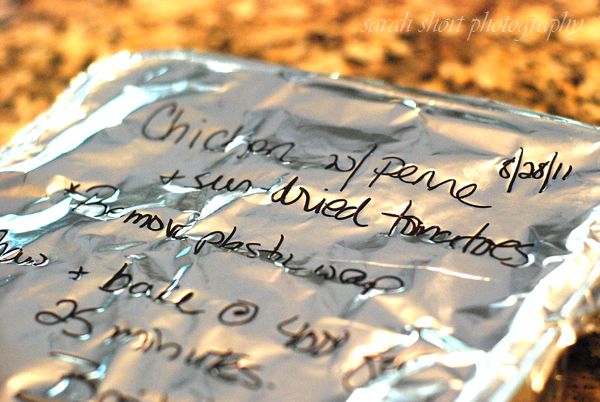 sarah short photography
Chicken w/ Penne 8/28/11
+ sun-dried tomatoes
*Remove plastic wrap
+ bake @ 400 for
25 minutes.